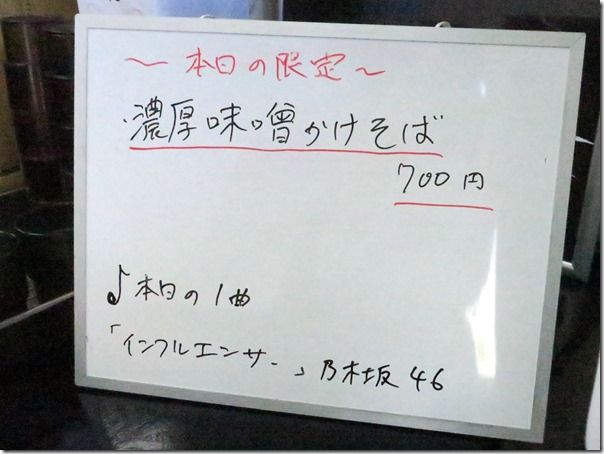 ～本日の限定～
・濃厚味噌かけそば
700円
♪本日の1曲
「インフルエンサー」乃木坂46